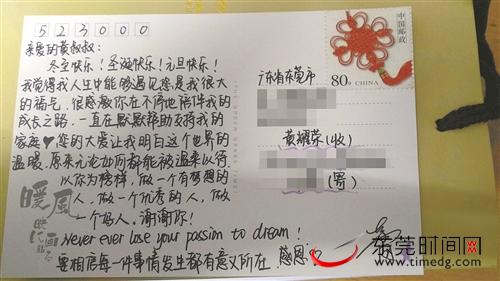 523000
亲爱的黄叔叔:
冬至快乐!圣诞快乐!元旦快乐!
我觉得我人生中能够遇见您是我很大
的福气,很感激你在不停地陪伴我的
成长之路,一直在默默帮助支持我的
家庭♥您的大爱让我明白这个世界的
温暖,原来无论如何都能被温柔以待.
以你为榜样,做一个有梦想的
人,做一个优秀的人,做
一个好人,谢谢你!
Never ever lose your passion to dream!
要相信每一件事情发生都有意义所在.感恩!
暖风
中国邮政
80分 CHINA
广东省东莞市
黄耀荣(收)
(寄)
东莞时间网
www.timedg.com